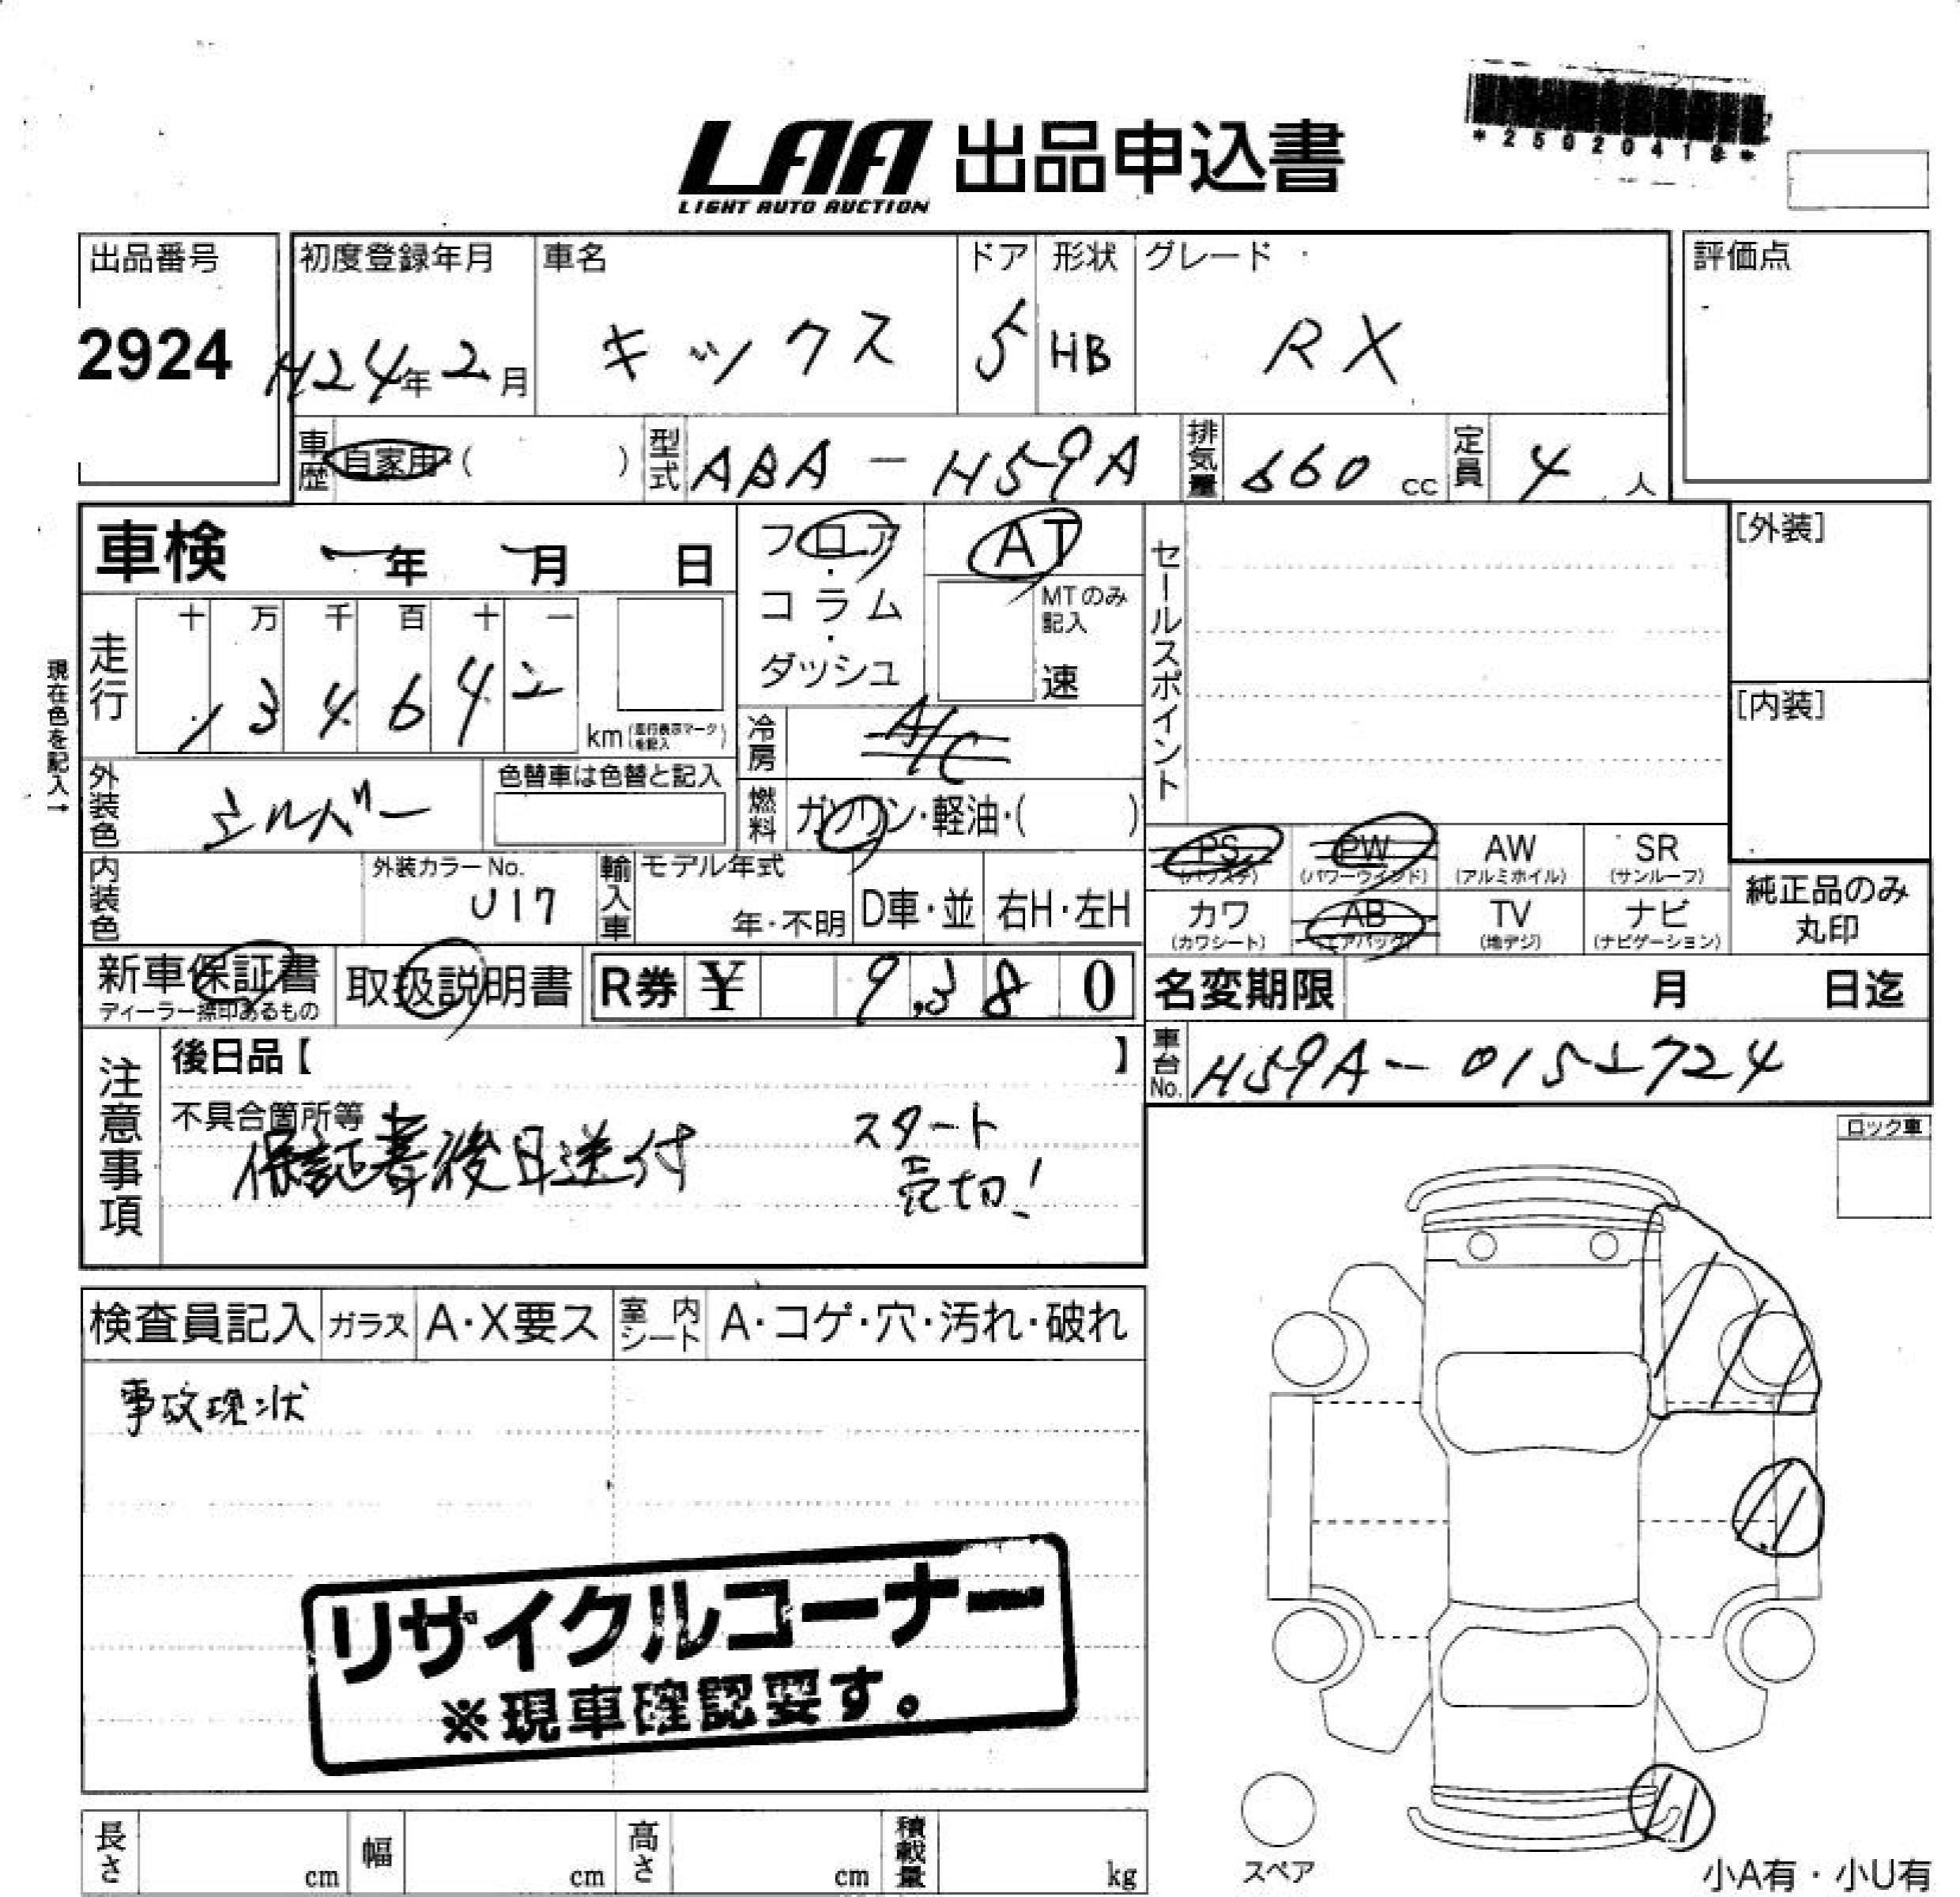 *25020418*
LAA 出品申込書
LIGHT AUTO AUCTION
出品番号 初度登録年月 車名 ドア 形状 グレード 評価点
2924 H24年 2月 キックス 5 HB RX
車歴 自家用・( ) 型式 ABA-H59A 排気量 660 cc 定員 4 人
車検 年 月 日 フロア・コラム・ダッシュ AT MTのみ記入 速 セールスポイント [外装]
現在色を記入→
走行 十 万 千 百 十 一
134642 km (走行表示マークを記入)
[内装]
冷房 A/C
外装色 シルバー 色替車は色替と記入 燃料 ガソリン・軽油・( )
PS (パワステ) PW (パワーウインド) AW (アルミホイル) SR (サンルーフ)
内装色 外装カラーNo. U17 輸入車 モデル年式 年・不明 D車・並 右H・左H
カワ (カワシート) AB (エアバッグ) TV (地デジ) ナビ (ナビゲーション) 純正品のみ丸印
新車保証書 ディーラー捺印あるもの 取扱説明書 R券 ¥ 9,380 名変期限 月 日迄
注意事項 後日品【 】 車台No.
不具合箇所等
保証書後日送付 スタート
売切!
ロック車
検査員記入 ガラス A・X要ス 室内シート A・コゲ・穴・汚れ・破れ
事故現状
リサイクルコーナー
※現車確認要す。
長さ cm 幅 cm 高さ cm 積載量 kg
スペア 小A有・小U有